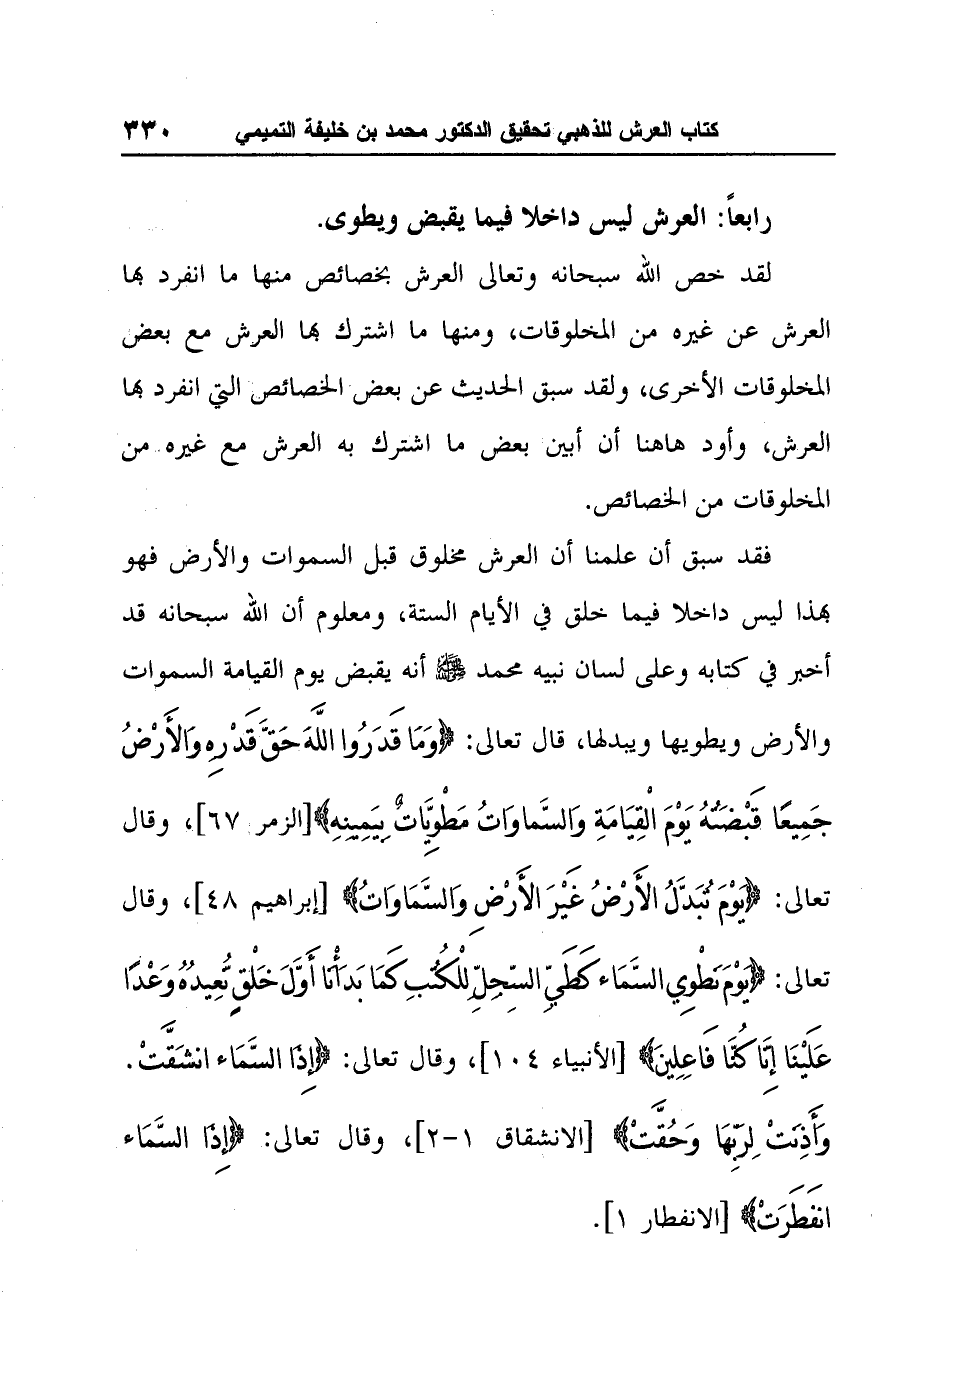 كتاب العرش للذهبي تحقيق الدكتور محمد بن خليفة التميمي ٣٣٠
رابعاً: العرش ليس داخلا فيما يقبض ويطوى.
لقد خص الله سبحانه وتعالى العرش بخصائص منها ما انفرد بها
العرش عن غيره من المخلوقات، ومنها ما اشترك بها العرش مع بعض
المخلوقات الأخرى، ولقد سبق الحديث عن بعض الخصائص التي انفرد بها
العرش، وأود هاهنا أن أبين بعض ما اشترك به العرش مع غيره من
المخلوقات من الخصائص.
فقد سبق أن علمنا أن العرش مخلوق قبل السموات والأرض فهو
بهذا ليس داخلا فيما خلق في الأيام الستة، ومعلوم أن الله سبحانه قد
أخبر في كتابه وعلى لسان نبيه محمد ﷺ أنه يقبض يوم القيامة السموات
والأرض ويطويها ويبدلها، قال تعالى: ﴿وَمَا قَدَرُوا اللَّهَ حَقَّ قَدْرِهِ وَالْأَرْضُ
جَمِيعًا قَبْضَتُهُ يَوْمَ الْقِيَامَةِ وَالسَّمَاوَاتُ مَطْوِيَّاتٌ بِيَمِينِهِ﴾[الزمر ٦٧]، وقال
تعالى: ﴿يَوْمَ تُبَدَّلُ الْأَرْضُ غَيْرَ الْأَرْضِ وَالسَّمَاوَاتُ﴾ [إبراهيم ٤٨]، وقال
تعالى: ﴿يَوْمَ نَطْوِي السَّمَاء كَطَيِّ السِّجِلِّ لِلْكُتُبِ كَمَا بَدَأْنَا أَوَّلَ خَلْقٍ نُّعِيدُهُ وَعْدًا
عَلَيْنَا إِنَّا كُنَّا فَاعِلِينَ﴾ [الأنبياء ١٠٤]، وقال تعالى: ﴿إِذَا السَّمَاء انشَقَّتْ.
وَأَذِنَتْ لِرَبِّهَا وَحُقَّتْ﴾ [الانشقاق ١-٢]، وقال تعالى: ﴿إِذَا السَّمَاء
انفَطَرَتْ﴾ [الانفطار ١].